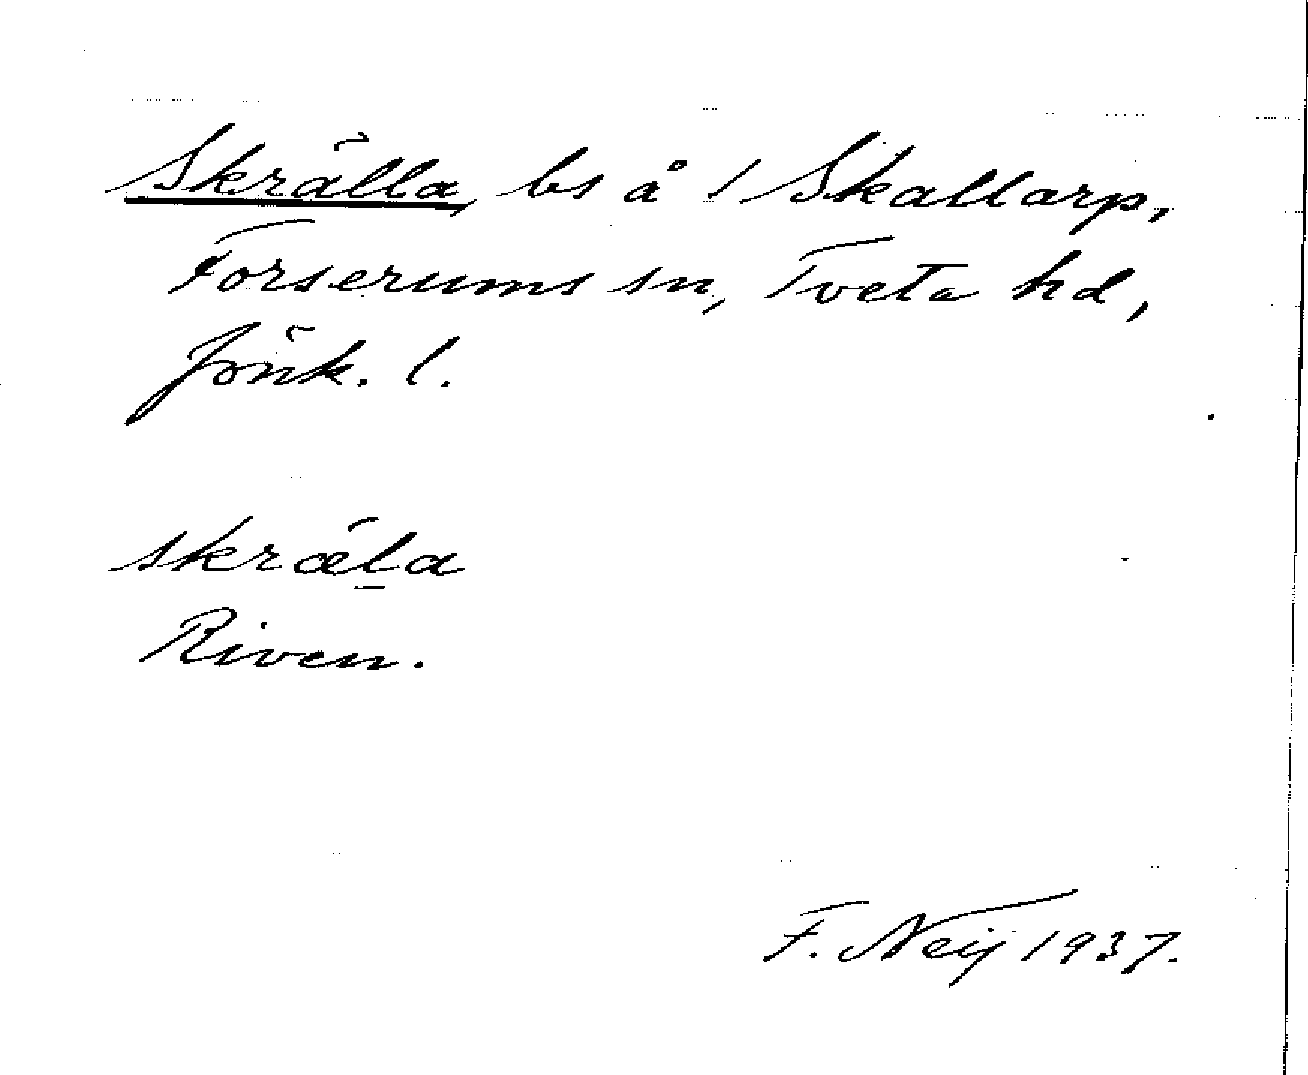 Skrälla, bs å 1 Skallarp,
Forserums sn, Tveta hd,
Jönk. l.
skræl̲a
Riven.
F. Neij 1937.